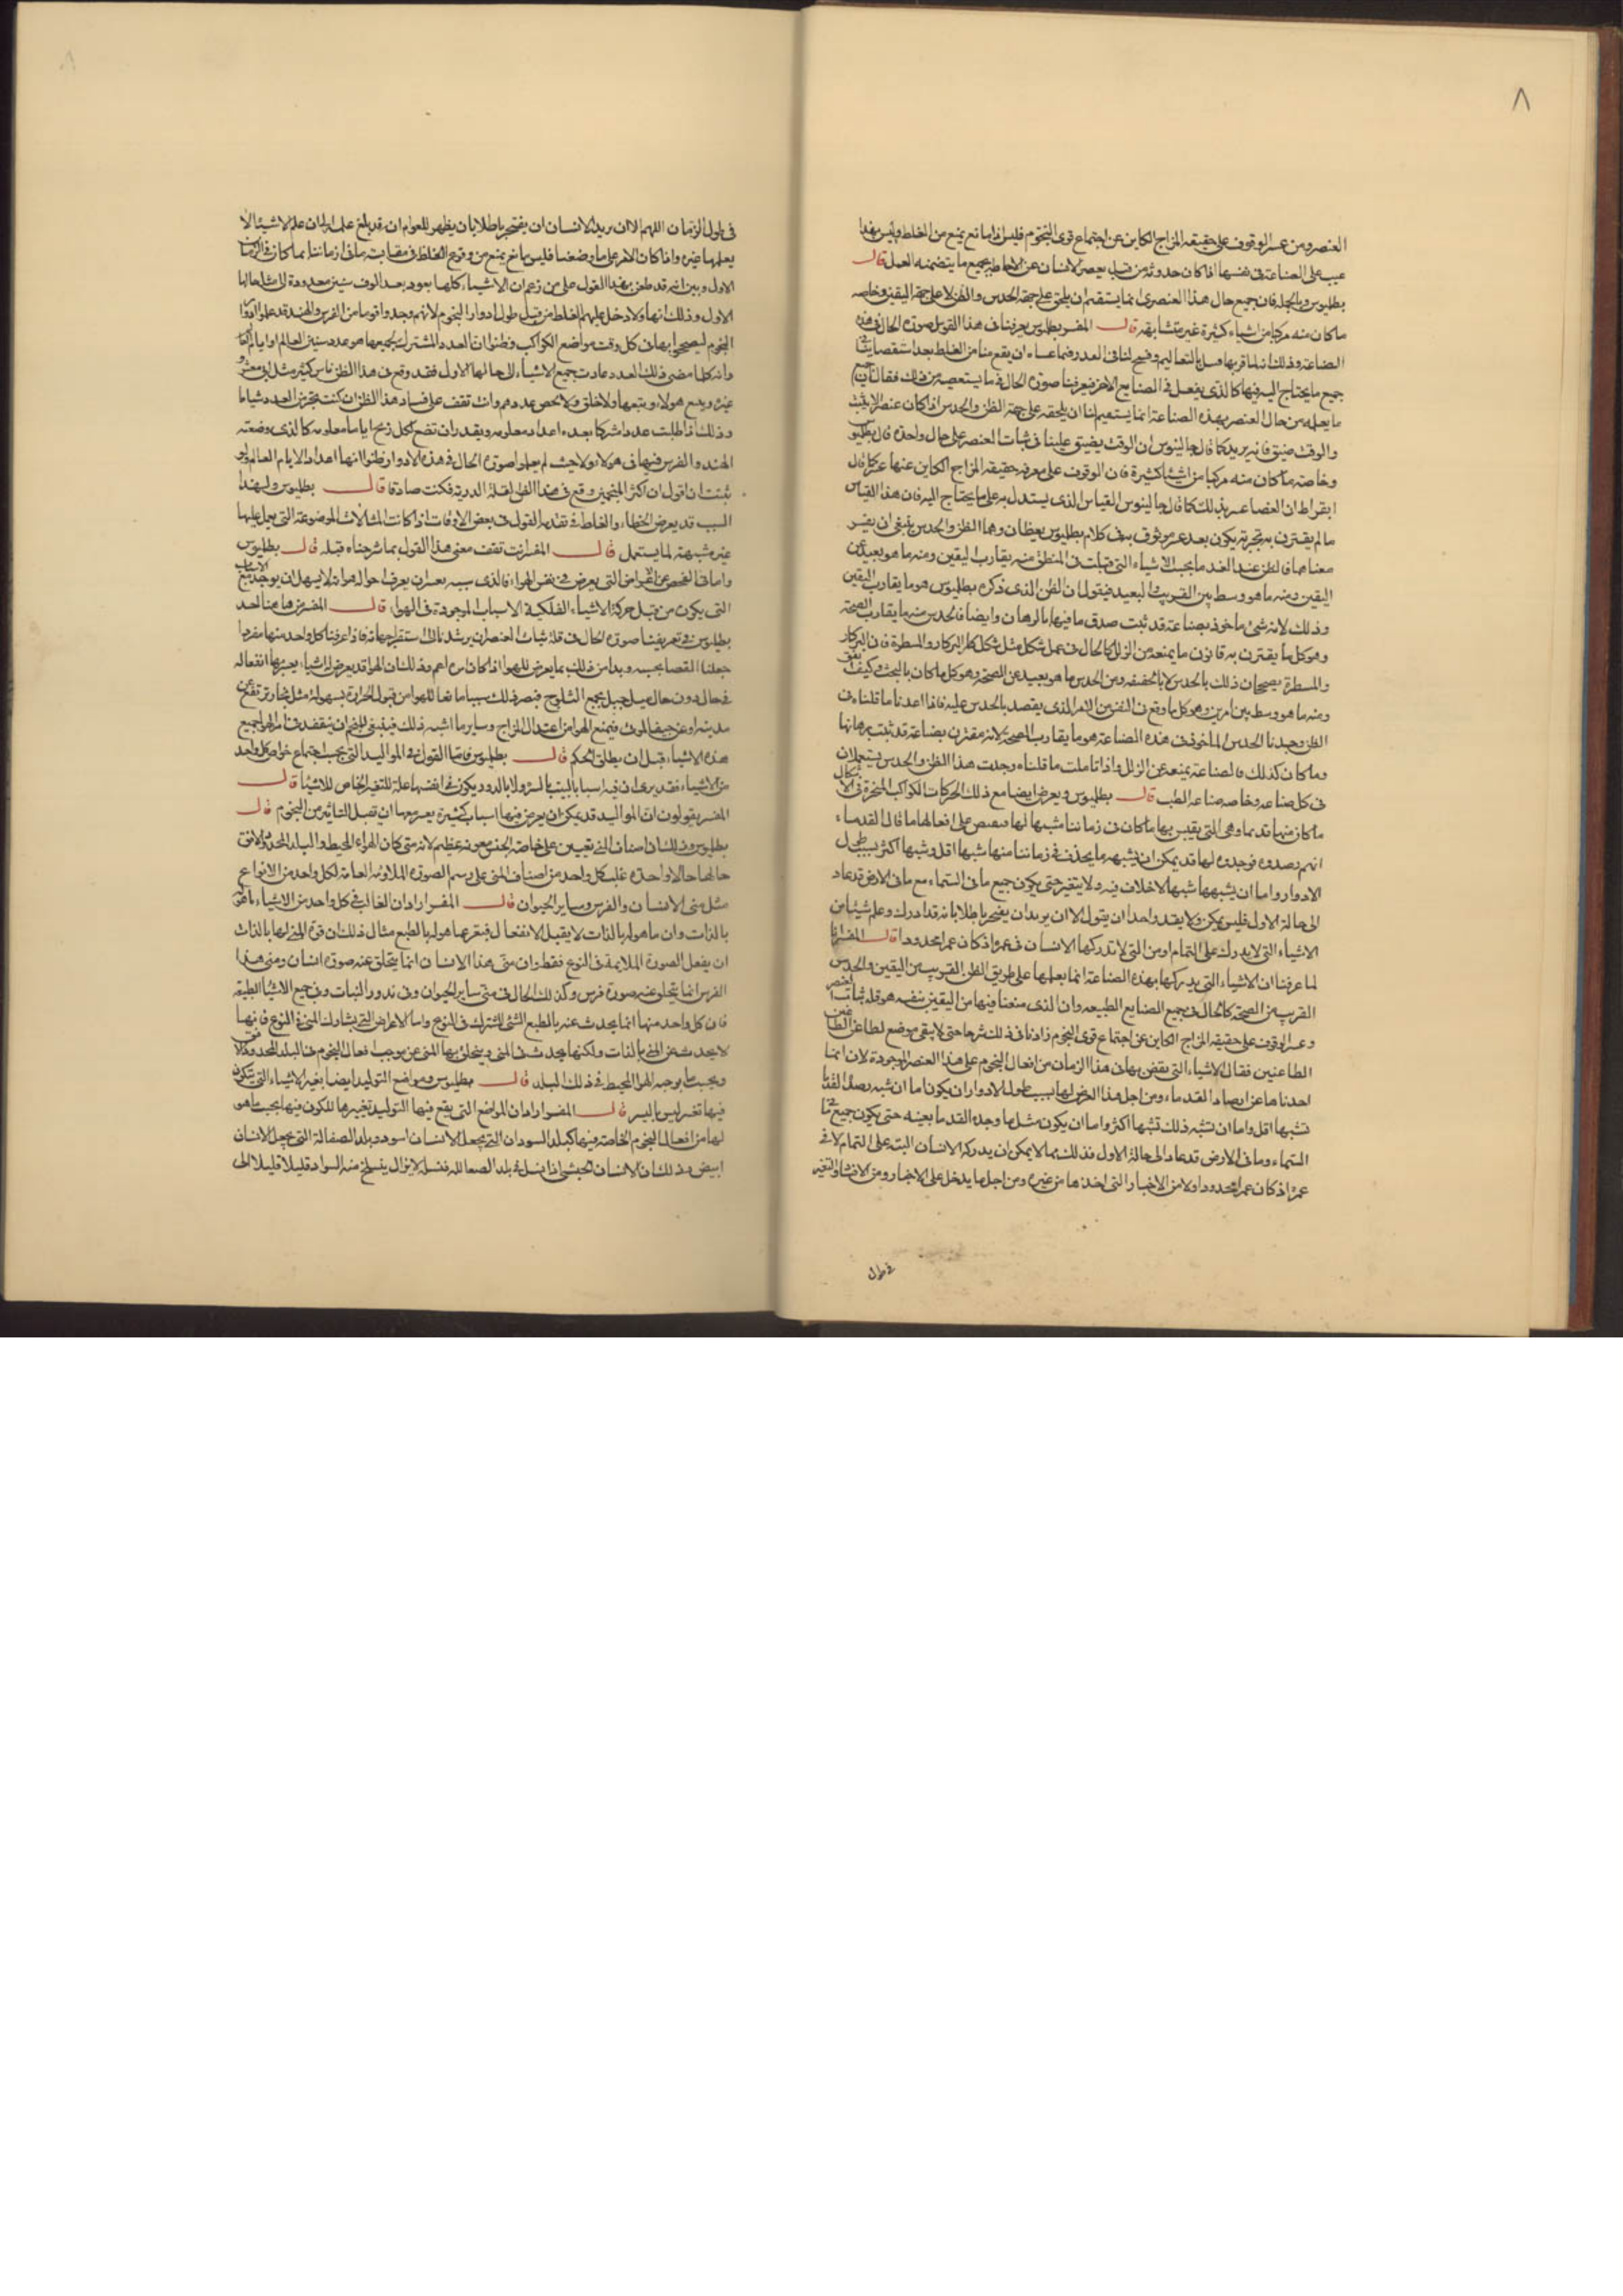 ٨
العنصر ومن عسر الوقوف على حقيقة المزاج الكاين عن اجتماع قوى النجوم فليس اذا مانع يمنع من الغلط وليس بهذا
عيب على الصناعة فى نفسها اذا كان حدوثه من قبل الانسان عن الاحاطة بجميع ما يتضمنه العمل قال
بطلميوس وبالجملة فان جميع حال هذا العنصرى انما يستقيم ان يلحق على جهة الحدس والظن لا على جهة اليقين وخاصه
ما كان منه مركبا من اشياء كثيرة غير متشابهة قال المفسر بطلميوس يعرفنا فى هذا القول صورة الحال فى هذه
جميع ما يحتاج اليه فيها كالذى يفعل فى الصنايع الاخر فيعرفنا صورة الحال
ما يعلمه من حال العنصر بهذه الصناعة انما يستقيم لنا ان يلحقه على جهة الظن والحدس اذا كان عنصر الاشياء
والوقت ضيق فانه يريد كما قال جالينوس ان الوقت يضيق علينا فى ثبات العنصر على حال واحدة قال بطلميوس
وخاصه ما كان منه مركبا من اشياء كثيرة فان الوقوف على معرفة حقيقة المزاج الكاين عنها عسر كما قال
ابقراط ان القضا عسر يريد بذلك كما قال جالينوس القياس الذى يستدل به على ما يحتاج اليه فان هذا القياس
ما لم يقترن به تجربة يكون بعد غير موثوق به فى كلام بطلميوس لفظان وهما الظن والحدس ينبغى ان يفسر
معناهما فالظن عند القدما بحسب الاشياء التى قيلت فى المنطق منه يقارب اليقين ومنه ما هو بعيد عن
اليقين ومنه ما هو وسط بين القريب والبعيد فنقول ان الظن الذى ذكره بطلميوس هو ما يقارب اليقين
وذلك لانه شئ مأخوذ بصناعة قد ثبت صدق ما فيها بالبرهان وايضا فالحدس منه ما يقارب الصحة
وهو كل ما يقترن به قانون ما يمنعه من الزلل كالحال فى عمل شكل مثل شكل كار البركار والمسطرة فان البركار
والمسطرة يصححان ذلك بالحدس لا بالحقيقة ومن الحدس ما هو بعيد عن الصحة وهو كل ما كان بالبحث وكيف اتفق
ومنه ما هو وسط بين امرين وهو كل ما وقع فى النفس من الامر الذى يقصد بالحدس عليه فاذا اعدنا ما قلناه فى
الظن وجدنا الحدس الماخوذ فى هذه الصناعة هو ما يقارب الصحة لانه مقترن بصناعة قد ثبت برهانها
وما كان كذلك فالصناعة يمنعه عن الزلل واذا تاملت ما قلناه وجدت هذا الظن والحدس يستعملان
فى كل صناعه وخاصه صناعه الطب قال بطلميوس ويعرض ايضا مع ذلك ان حركات الكواكب المتحيرة فى الاشكال
ما كان منها قديما وهى التى يقيس بها ما كان فى زماننا مشبها لها فيقص على افعالها ما قال القدماء
انهم رصدوه فوجدوه لها قد يمكن ان يشبهه ما يحدث فى زماننا منها شبها اقل وشبها اكثر بسبب طول
الادوار واما ان يشبهها شبها لا خلاف فيه ولا يتغير حتى يكون جميع ما فى السماء مع ما فى الارض قد عاد
الى حالة الاول فليس يمكن ولا يقدر واحد ان يقول الا ان يريد ان يفتخر باطلا بانه قد ادرك وعلم شيئا من
الاشياء التى لا يدرك على التمام او من التى لا تدركها الانسان فى عمره اذ كان عمرا محدودا قال المفسر انا
لما عرفنا ان الاشياء التى يدركها بهذه الصناعة انما يعلمها على طريق الظن القريب من اليقين والحدس
القريب من الصحة كالحال فى جميع الصنايع الطبيعيه وان الذى منعنا فيها من اليقين نفسه هو قلة ثبات العنصر
وعسر الوقوف على حقيقة المزاج الكاين عن اجتماع قوى النجوم زادنا فى ذلك شرحا حتى لا يبقى موضع لطاعن من الطاعنين
الطاعنين فقال الاشياء التى يقضى بها فى هذا الزمان من افعال النجوم على هذا العنصر الموجودة لان انما
اخذناها عن ارصاد القدماء ومن اجل هذا العرض لها بسبب طول الادوار ان يكون اما ان تشبه رصد القدما
تشبها اقل واما ان تشبه ذلك تشبها اكثر واما ان يكون مثل ما وجده القدما بعينه حتى يكون جميع ما فى
السماء وما فى الارض قد عاد الى حالة الاول فذلك مما لا يمكن ان يدركه الانسان البته على التمام لا فى
عمره اذ كان عمرا محدودا ولا من الاخبار التى اخذها من غيره ومن اجل ما يدخل على الاخبار
فى طول
٨
فى طول الزمان اللهم الا ان يريد الانسان ان يفتخر باطلا بان يظهر للعوام انه قد بلغ علمه الى ان علم الاشياء التى لا
يعلمها غيره واذا كان الامر على ما وضعنا فليس مانع يمنع من وقوع الغلط فى مقايسة ما فى زماننا بما كان فى الزمان
الاول وبين انه قد طعن بهذا القول على من زعم ان الاشياء كلها يعود بعد الوف سنين معدودة الى مثل حالها
الاول وذلك انها ولا دخل عليهم الغلط من قبل طول ادوار النجوم لانهم وجدوا قوما من الفرس والهند قد عملوا ادوار
النجوم ليصححوا بها فى كل وقت مواضع الكواكب وظنوا ان العدد المشترك لجميعها هو عدد سنين العالم او ايامه
وانه كلما مضى ذلك العدد عادت جميع الاشياء الى حالها الاول فقد وقع فى هذا الظن ناس كثير مثل ابى معشر
غيره ومع هولاء وتبعهما ولا خلق ولا يحصى عددهم وانت تقف على فساد هذا الظن ان كنت
وذلك اذا طلبت عددا مشتركا يعده اعداد معلومه ويقدر ان تضع لكل زيج اياما معلومه كالذى وضعته
الهند والفرس فيها فى هولاء ولا حيث لم يعلموا صورة الحال فى هذه الادوار ظنوا انها اعداد الايام العالم ولو
شئت ان اقول ان اكثر المنجمين وقع فى هذا الظن لقلة الدربة فكنت صادقا قال بطلميوس ولهذا
السبب قد يعرض الخطاء والغلط فى تقدمة القول فى بعض الاوقات اذا كانت المثالات الموضوعة التى يعمل عليها
غير مشبهة لما يستعمل قال المفسر انت تقف معنى هذا القول بما شرحناه قبله قال بطلميوس
واما الفحص عن الاعراض التى يعرض فى نفس الهواء فالذى سببه يعسر ان يعرف احواله هو انه لا يسهل ان يوجد جميع الاسباب
التى يكون من قبل حركة الاشياء الفلكية الاسباب الموجودة فى الهواء قال المفسر
بطلميوس فى تعريفنا صورة الحال فى قلة ثبات العنصر ان يرشدنا الى استخراجها فاذا عرفنا كل واحد منها مفردا
جعلنا القضا بحسبه وبدا من ذلك بما يعرض للهوا وذلك ان الهوا قد يعرض له اشياء يعسر بها انفعاله
فى حال دون حال ميل جبل يجمع الثلوج فيصير ذلك سببا مانعا للهوا من قبول الحرارة بسهولة مثل بخار يرتفع من
مدينه او عن جيف الموتى فيمنع الهوا من اعتدال المزاج وساير ما اشبه ذلك فينبغى للمنجم ان يتفقد فى امر الهوا جميع
هذه الاشياء قبل ان يطلق الحكم قال بطلميوس فاما القول فى المواليد التى بحسب اجتماع خواص كل واحد
من الاشياء فقد يرى ان فيه اسبابا ليست باليسيره ولا بالدون ويكون فى انفسها علة للتغير الخاص للاشياء قال
المفسر يقول ان المواليد قد يمكن ان يعرض فيها اسباب كثيرة يعسر معها ان تقبل التاثير من النجوم قال
بطلميوس وذلك ان اصناف المنى تعين على خاصة الجنس معونه عظيمه لانه متى كان الهواء المحيط والبلد المحدود والافق
حالها حالا واحده غلب كل واحد من اصناف المنى على رسم الصورة الملاومه العامه لكل واحد من الانواع
مثل منى الانسان والفرس وساير الحيوان قال المفسر اراد ان الغالب فى كل واحد من الاشياء ما هو له
بالذات وان ما هو له بالذات لا يقبل الانفعال فيغيرها هو له بالطبع مثال ذلك ان قوة المنى لها بالذات
ان يفعل الصورة الملايمة فى النوع فقط وان منى هذا الانسان انما يتخلق عنه صورة انسان ومنى هذا
الفرس انما يتخلق عنه صورة فرس وكذلك الحال فى منى ساير الحيوان وفى بذور النبات وفى جميع الاشياء الطبيعيه
فان كل واحد منها انما يحدث عنه بالطبع الشئ المشترك فى النوع واما الاعراض التى يشارك المنى فى النوع فانها
لا يحدث عن المنى بالذات ولكنها يحدث فى المنى ويتخلق بها المنى عن موجب افعال النجوم فى البلد المحدود
وبحسب ما يوجبه الهوا المحيط فى ذلك البلد قال بطلميوس ومواضع التوليد ايضا يغير الاشياء التى يتكون
فيها تغير ليس باليسير قال المفسر اراد ان المواضع التى يقع فيها التوليد تغييرها للكون فيها بحسب ما هو
لها من افعال النجوم الخاصة فيها كبلد السودان التى يجعل الانسان اسود وبلد الصقالبة التى يجعل الانسان
ابيض وذلك ان الانسان الحبشى اذا نسل فى بلد الصقالبه فنسله لا يزال ينسلخ منه السواد قليلا قليلا الى